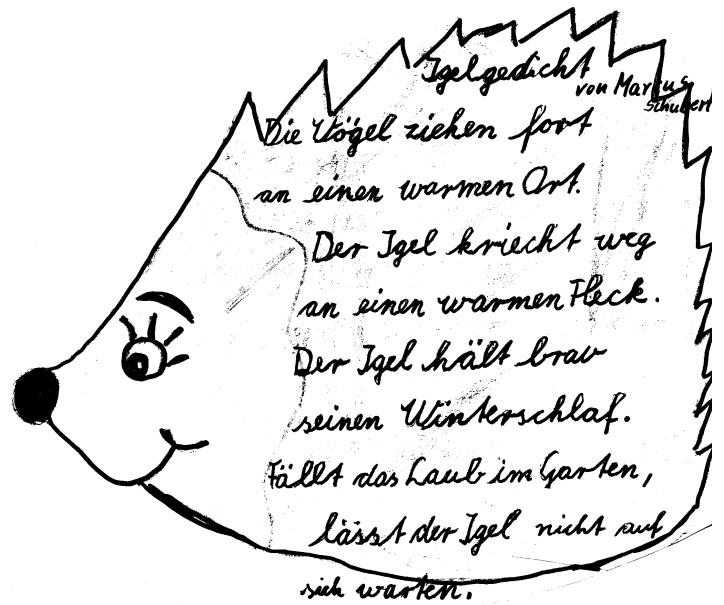 Igelgedicht
von Marius
Schubert
Die Vögel ziehen fort
an einen warmen Ort.
Der Igel kriecht weg
an einen warmen Fleck.
Der Igel hält brav
seinen Winterschlaf.
Fällt das Laub im Garten,
lässt der Igel nicht auf
sich warten.